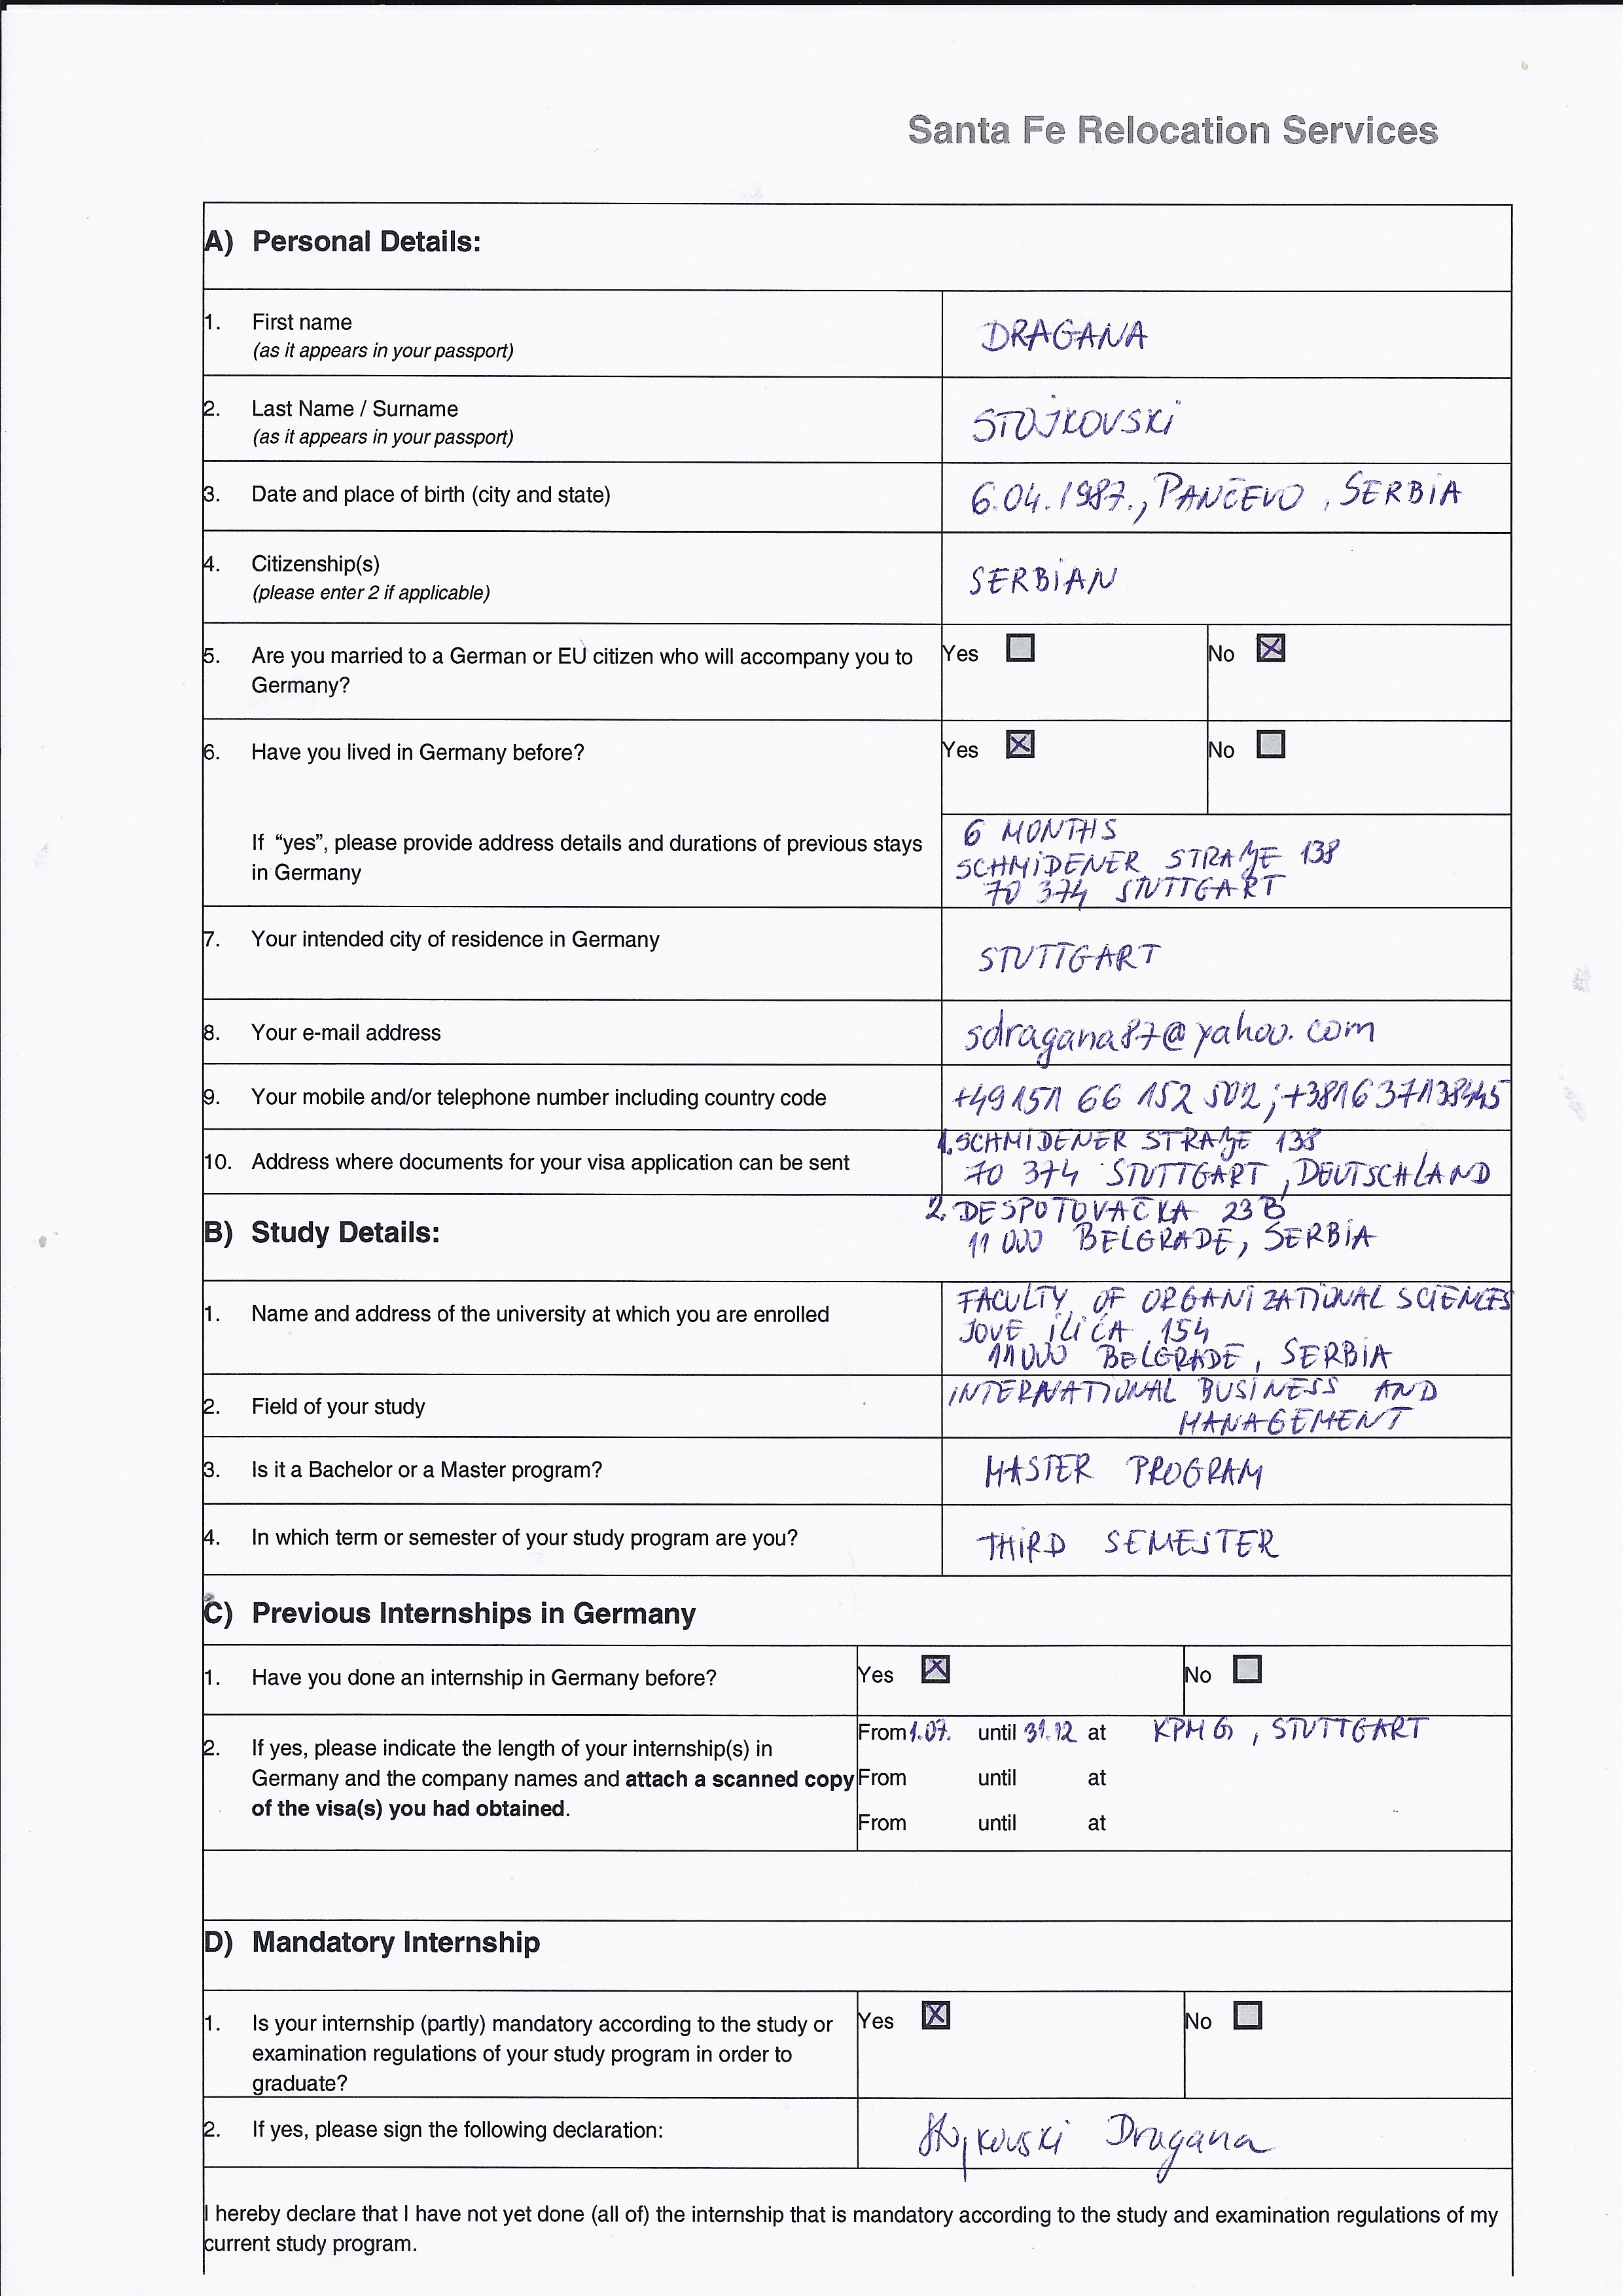 Santa Fe Relocation Services
A) Personal Details:
1. First name
(as it appears in your passport)
DRAGANA
2. Last Name / Surname
(as it appears in your passport)
STOJKOVSKI
3. Date and place of birth (city and state)
6.04.1987., PANČEVO, SERBIA
4. Citizenship(s)
(please enter 2 if applicable)
SERBIAN
5. Are you married to a German or EU citizen who will accompany you to
Germany?
Yes No
6. Have you lived in Germany before?
Yes No
If “yes”, please provide address details and durations of previous stays
in Germany
6 MONTHS
SCHMIDENER STRAßE 138
70 374 STUTTGART
7. Your intended city of residence in Germany
STUTTGART
8. Your e-mail address
sdragana87@yahoo.com
9. Your mobile and/or telephone number including country code
+49 151 66 152 502; +381637138445
10. Address where documents for your visa application can be sent
1. SCHMIDENER STRAßE 138
70 374 STUTTGART, DEUTSCHLAND
2. DESPOTOVAČKA 23 B
11 000 BELGRADE, SERBIA
B) Study Details:
1. Name and address of the university at which you are enrolled
FACULTY OF ORGANIZATIONAL SCIENCES
JOVE ILIĆA 154
11000 BELGRADE, SERBIA
2. Field of your study
INTERNATIONAL BUSINESS AND
MANAGEMENT
3. Is it a Bachelor or a Master program?
MASTER PROGRAM
4. In which term or semester of your study program are you?
THIRD SEMESTER
C) Previous Internships in Germany
1. Have you done an internship in Germany before?
Yes No
2. If yes, please indicate the length of your internship(s) in
Germany and the company names and attach a scanned copy
of the visa(s) you had obtained.
From 1.07. until 31.12 at KPMG, STUTTGART
From until at
From until at
D) Mandatory Internship
1. Is your internship (partly) mandatory according to the study or
examination regulations of your study program in order to
graduate?
Yes No
2. If yes, please sign the following declaration:
Stojkovski Dragana
I hereby declare that I have not yet done (all of) the internship that is mandatory according to the study and examination regulations of my
current study program.